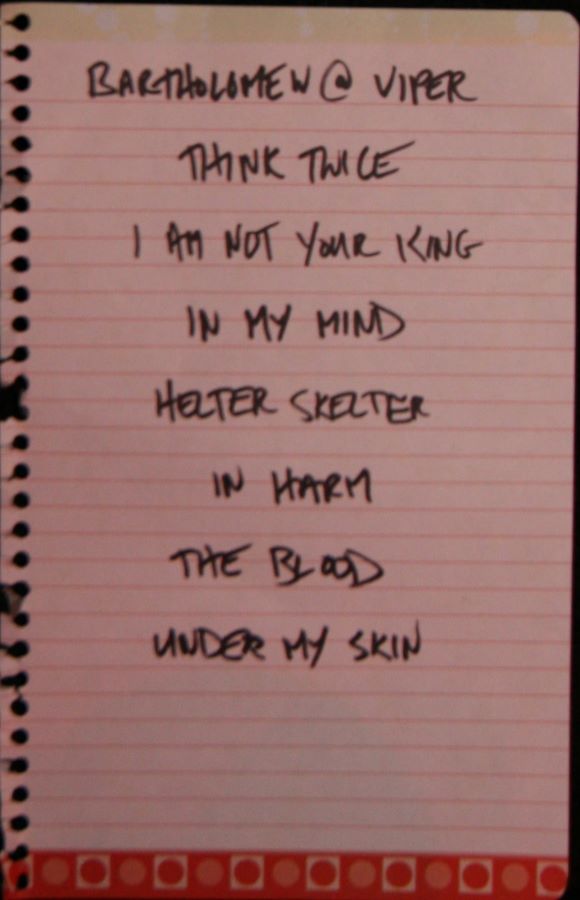 BARTHOLOMEW @ VIPER
THINK TWICE
I AM NOT YOUR KING
IN MY MIND
HELTER SKELTER
IN HARM
THE BLOOD
UNDER MY SKIN